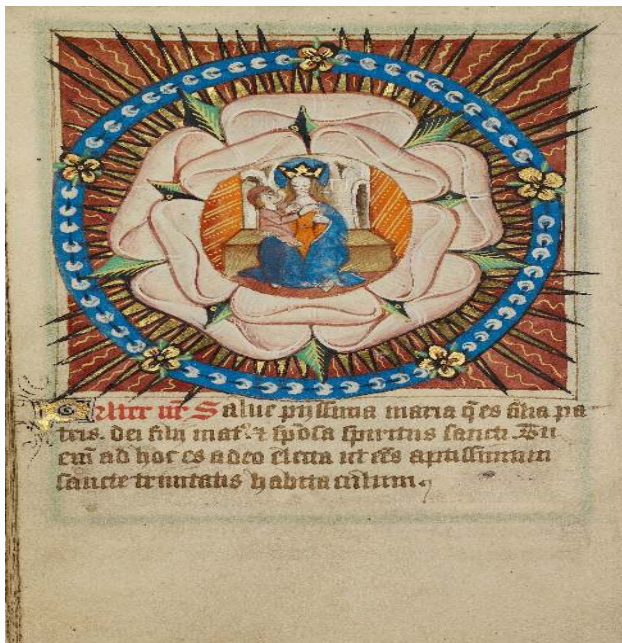 Pater nr̄ Salue pijssima maria q̄ es filia pa
tris. dei filij mat᷑. ⁊ sp̄osa spiritus sancti
em̄ ad hoc es adeo electa ut ēēs aptissimum
sancte trinitatis habitaculum.